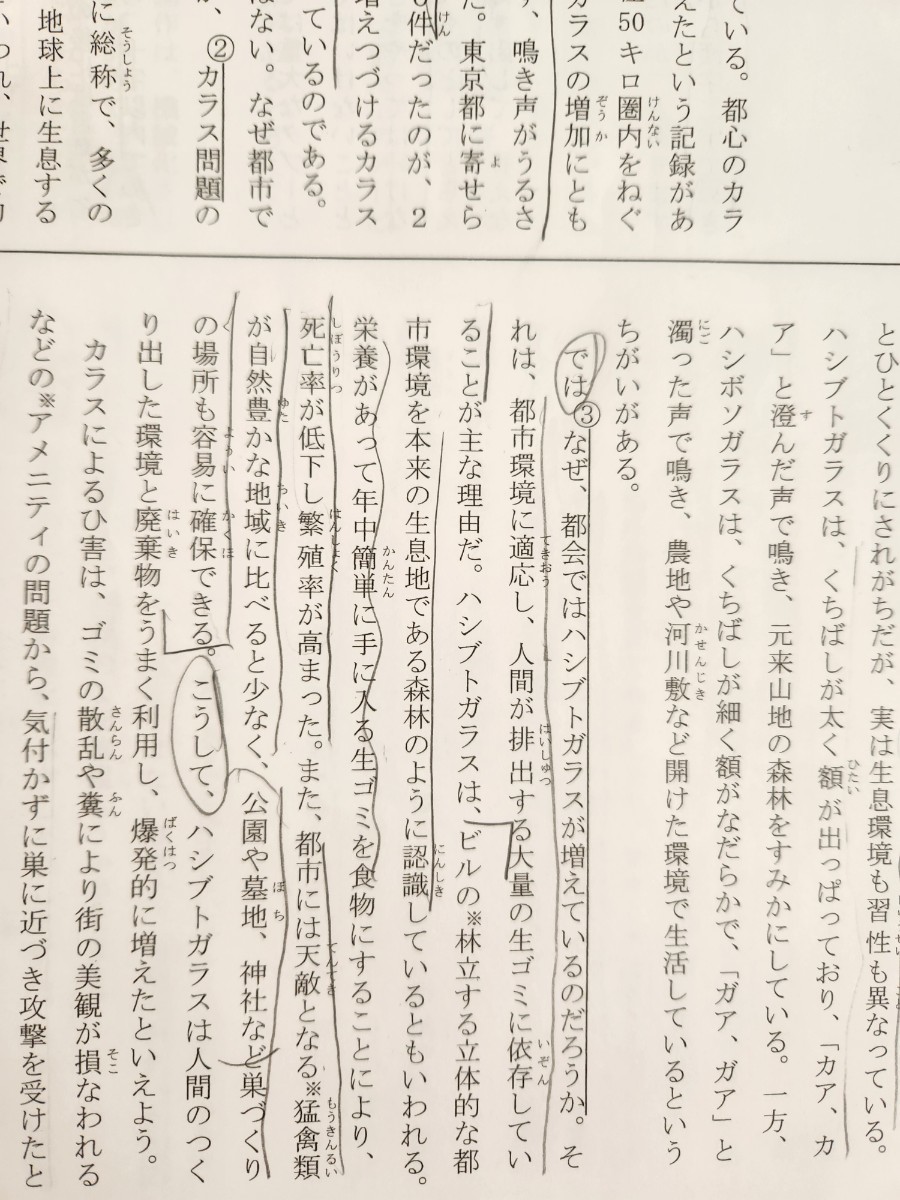 ている。都心のカラ
えたという記録があ
50キロ圏内をねぐ
ガラスの増加にとも
、鳴き声がうるさ
た。東京都に寄せら
件だったのが、2
増えつづけるカラス
ているのである。
②カラス問題の
はない。なぜ都市で
に総称で、多くの
地球上に生息する
とひとくくりにされがちだが、実は生息環境も習性も異なっている。
ハシブトガラスは、くちばしが太く額が出っぱっており、「カア、カ
ア」と澄んだ声で鳴き、元来山地の森林をすみかにしている。一方、
ハシボソガラスは、くちばしが細く額がなだらかで、「ガア、ガア」と
濁った声で鳴き、農地や河川敷など開けた環境で生活しているという
ちがいがある。
では③なぜ、都会ではハシブトガラスが増えているのだろうか。そ
れは、都市環境に適応し、人間が排出する大量の生ゴミに依存してい
ることが主な理由だ。ハシブトガラスは、ビルの※林立する立体的な都
市環境を本来の生息地である森林のように認識しているともいわれる。
栄養があって年中簡単に手に入る生ゴミを食物にすることにより、
死亡率が低下し繁殖率が高まった。また、都市には天敵となる※猛禽類
が自然豊かな地域に比べると少なく、公園や墓地、神社など巣づくり
の場所も容易に確保できる。こうして、ハシブトガラスは人間のつく
り出した環境と廃棄物をうまく利用し、爆発的に増えたといえよう。
カラスによるひ害は、ゴミの散乱や糞により街の美観が損なわれる
などの※アメニティの問題から、気付かずに巣に近づき攻撃を受けたと